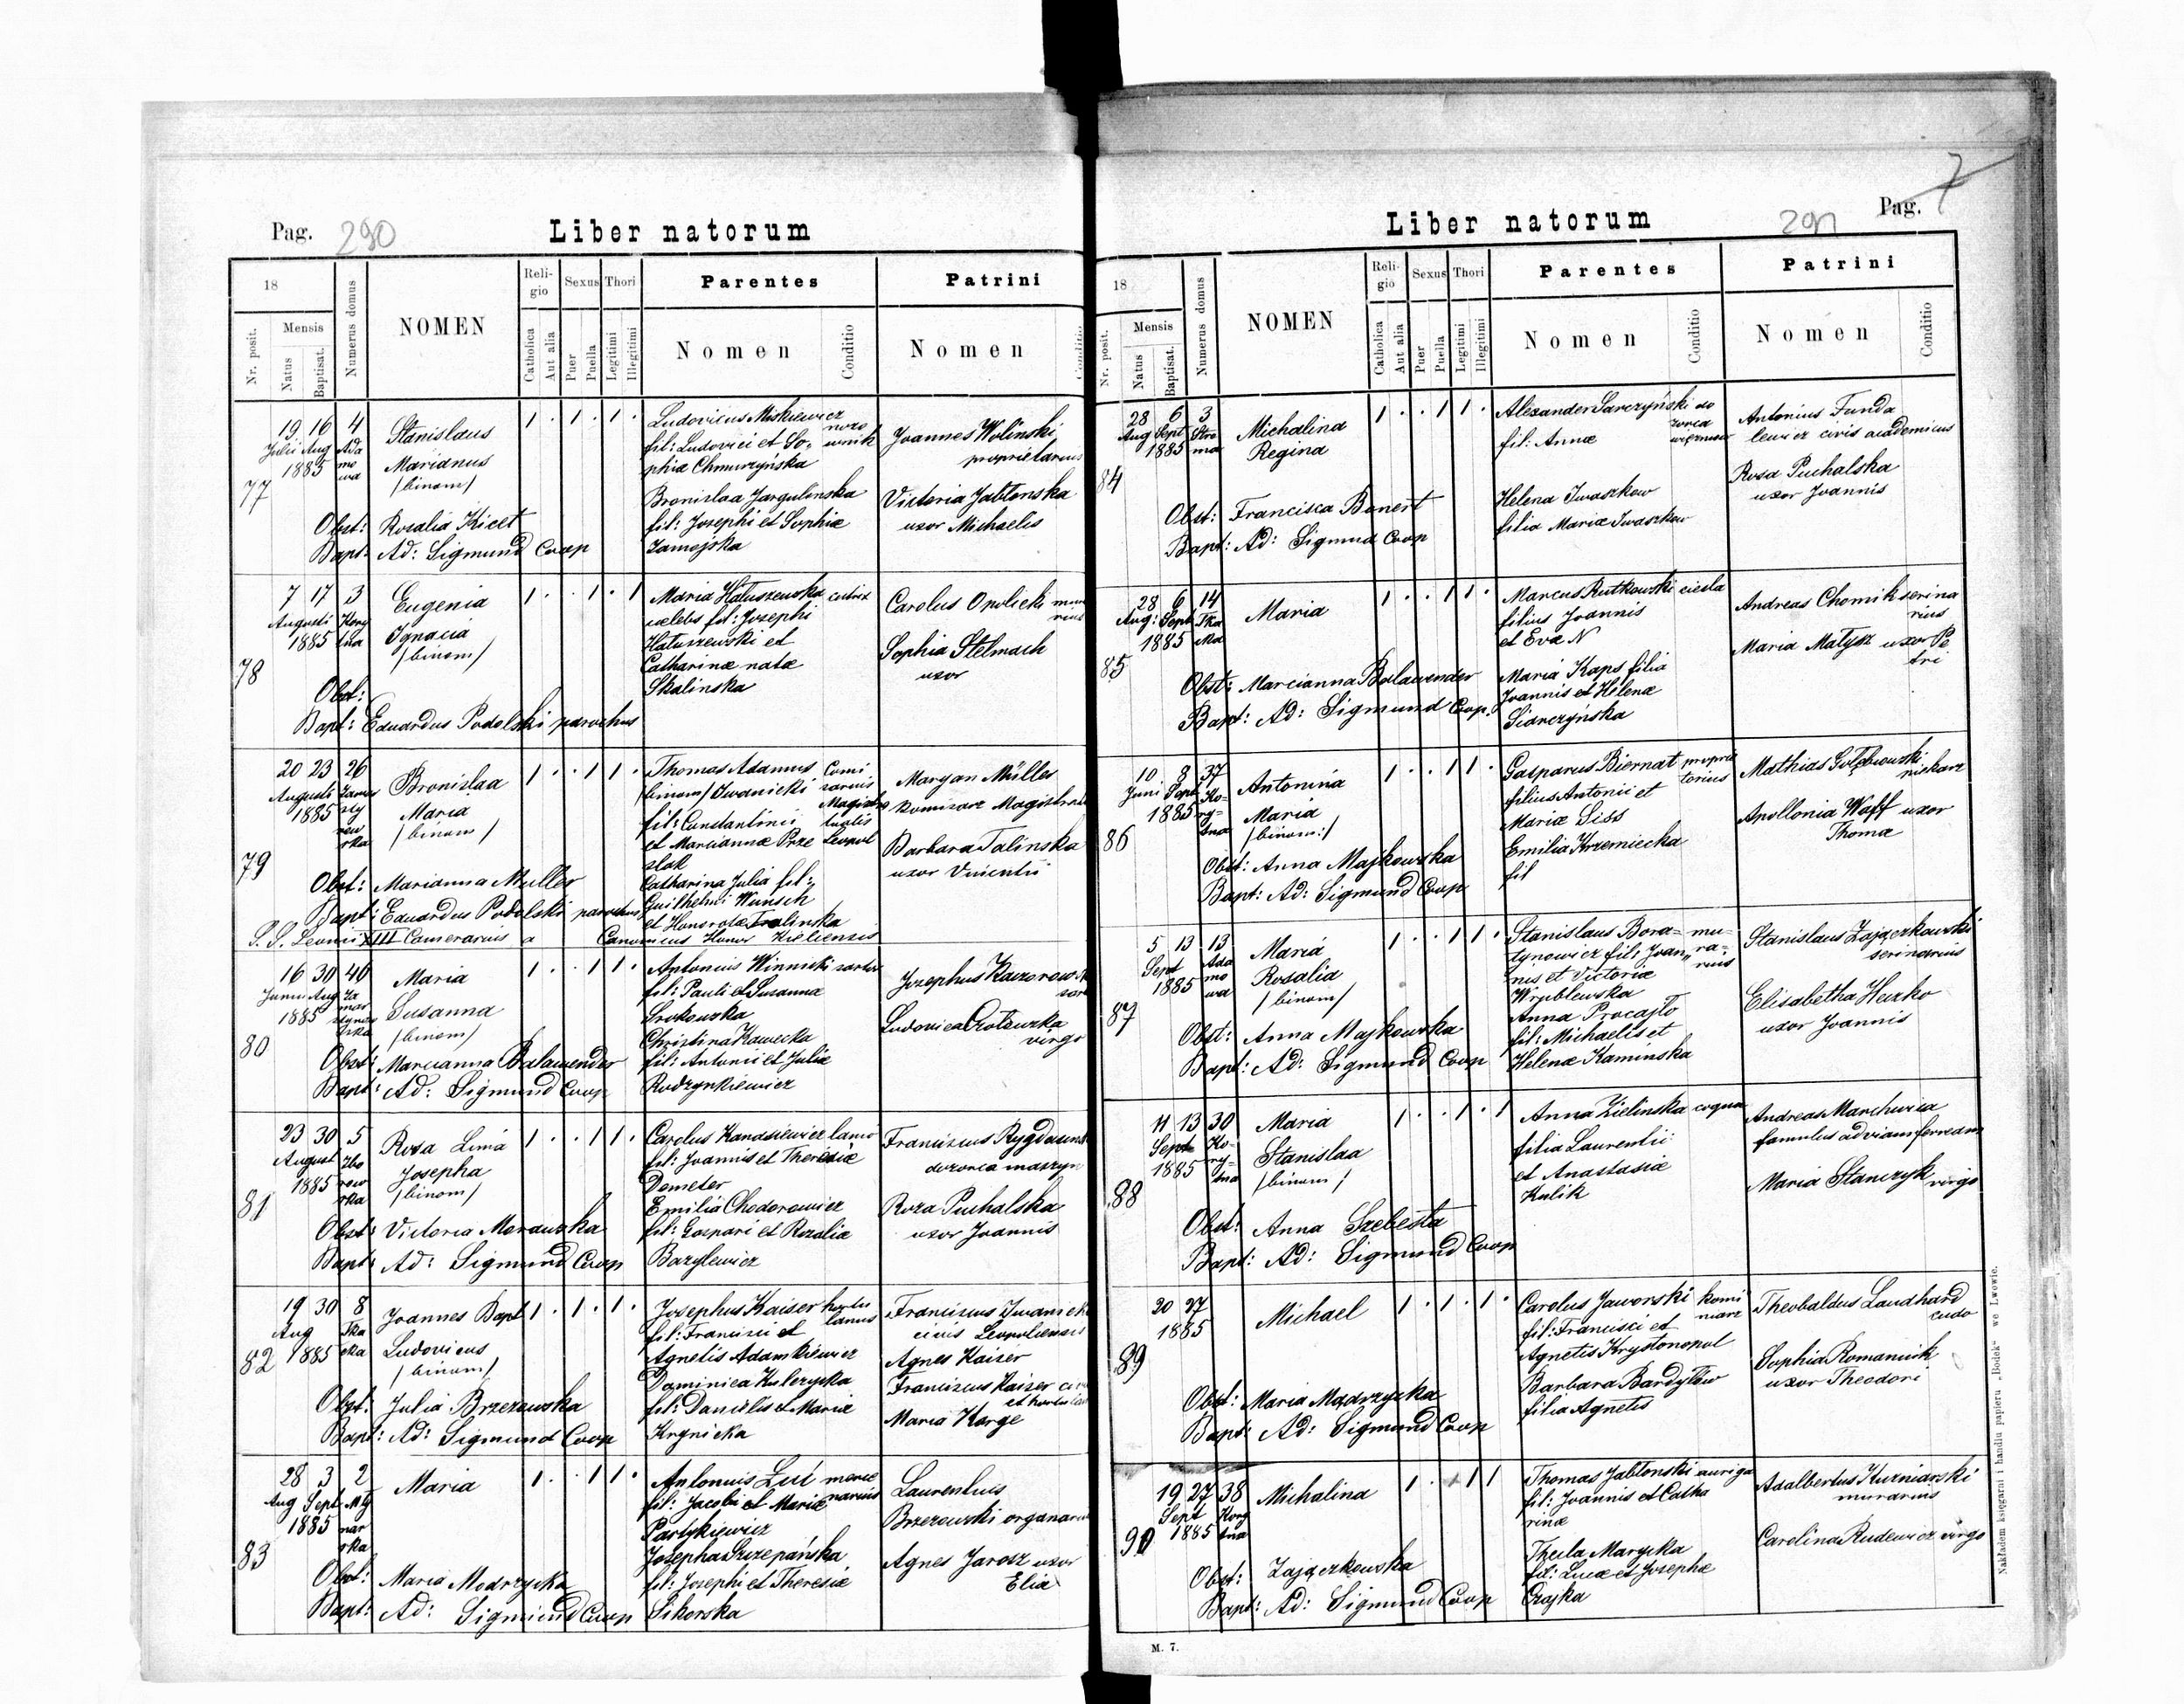 Pag. 290
Liber natorum
18
Mensis
Nr. posit.
Natus
Baptisat.
Numerus domus
NOMEN
Religio
Catholica
Aut alia
Sexus
Puer
Puella
Thori
Legitimi
Illegitimi
Parentes
Nomen
Conditio
Patrini
Nomen
77
19 16 4
Julii Aug Ada
1885 mo
wa
Stanislaus
Marianus
/binom/
1 . 1 . 1 .
Obst: Rosalia Kicet
Bapt: Ad: Sigmund Coop
Ludovicus Miskiewicz
fil: Ludovici et So-
phiæ Chmurzyńska
Bronislaa Jargulinska
fil: Josephi et Sophiæ
Zamojska
Joannes Wolinski
proprietarius
Victoria Jabłonska
uxor Michaelis
78
7 17 3
Augusti Kory
1885 tna
Eugenia
Ignacia
/binom/
1 . . 1 . 1
Obst:
Bapt: Eduardus Podolski parochus
Maria Hatuszewska
celebs fil: Josephi
Hatuszewski et
Catharinæ natæ
Skalinska
Carolus Opolicki
Sophia Stelmach
uxor
79
20 23 26
Augusti
1885
Bronislaa
Maria
/binom/
1 . . 1 1 .
Obst: Marianna Muller
Bapt: Eduardus Podolski parochus
S. S. Leonis XIII Camerarius a Canonicus Honor Kieliensis
Thomas Adamus
/binom/ Iwanicki
fil: Constantini
et Mariannæ Prze
slak
Catharina Julia fil:
Guilhelmi Wunsch
et Honoratæ Tralinska
Maryan Müller
komisarz Magistratu
Barbara Talinska
uxor Vincentii
80
16 30 40
Junii Aug
1885
Maria
Susanna
/binom/
1 . . 1 1 .
Obst: Marcianna Balawender
Bapt: Ad: Sigmund Coop
Antonius Winnicki sartor
fil: Pauli et Susannæ
Srokowska
Christina Kawecka
fil: Antonii et Juliæ
Rodzynkiewicz
Ludovica
virgo
81
23 30 5
August Zbo
1885 row
ska
Rosa Lima
Josepha
/binom/
1 . . 1 1 .
Obst: Victoria Morawska
Bapt: Ad: Sigmund Coop
Carolus Kanasiewicz lanio
fil: Joannis et Theresiæ
Demeter
Emilia Chodorowicz
fil: Gaspari et Rozaliæ
Bazylewicz
dozorca maszyn
Roza Puchalska
uxor Joannis
82
19 30 8
Aug Tka
1885 cka
Joannes Bapt
Ludovicus
/binom/
1 . 1 . 1 .
Obst: Julia Brzezowska
Bapt: Ad: Sigmund Coop
Josephus Kaiser hortu
lanus
fil: Francisci et
Agnetis Adamkiewicz
Dominica Kulczycka
fil: Danielis et Mariæ
Krynicka
Franciscus Iwanicki
civis Leopoliensis
Agnes Kaiser
Franciscus Kaiser
Maria Karge
83
28 3 2
Aug Sept
1885
Maria
1 . . 1 1 .
Obst: Maria Modrzycka
Bapt: Ad: Sigmund Coop
Antonius Zuś merce
narius
fil: Jacobi et Mariæ
Partykiewicz
Josepha Szczepańska
fil: Josephi et Theresiæ
Sikorska
Laurentius
Brzezowski
Agnes Jarosz uxor
Eliæ
Pag. 7
291
Liber natorum
18
Mensis
Nr. posit.
Natus
Baptisat.
Numerus domus
NOMEN
Religio
Catholica
Aut alia
Sexus
Puer
Puella
Thori
Legitimi
Illegitimi
Parentes
Nomen
Conditio
Patrini
Nomen
Conditio
84
28 6 3
Aug Sept Stro
1885 ma
Michalina
Regina
1 . . 1 1 .
Obst: Francisca Bonert
Bapt: Ad: Sigmund Coop
Alexander Sarczyński
fil: Annæ
Helena Iwaszkow
filia Mariæ Iwaszkow
Antonius Funda
lewicz civis academicus
Rosa Puchalska
uxor Joannis
85
28 6 14
Aug: Sept Tka
1885 cka
Maria
1 . . 1 1 .
Obst: Marcianna Balawender
Bapt: Ad: Sigmund Coop.
Marcus Rutkowski ciesla
filius Joannis
et Evæ N
Maria Kaps filia
Joannis et Helenæ
Siarczyńska
Andreas Chomik serina
rius
Maria Matysz uxor Pe
tri
86
10 8 37
Juni Sept Ko-
1885 ry-
tna
Antonina
Maria
/binom:/
1 . . 1 1 .
Obst: Anna Majkowska
Bapt: Ad: Sigmund Coop
Gasparus Biernat proprie
tarius
filius Antonii et
Mariæ Liss
Emilia Krzemiecka
fil
Mathias Gołębiowski
piekarz
Apollonia Waff uxor
Thomæ
87
5 13 13
Sept Ada
1885 mo
wa
Maria
Rosalia
/binom/
1 . . 1 1 .
Obst: Anna Majkowska
Bapt: Ad: Sigmund Coop
Stanislaus Bora= mu-
tynowicz fil: Joan= ra-
rius
nis et Victoriæ
Wrublewska
Anna Procajło
fil: Michaelis et
Helenæ Kaminska
Stanislaus Zajączkowski
serinarius
Elisabetha Heczko
uxor Joannis
88
11 13 30
Sept Ko-
1885 ry-
tna
Maria
Stanislaa
/binom/
1 . . 1 . 1
Obst: Anna Szebesta
Bapt: Ad: Sigmund Coop
Anna Zielinska coqua
filia Laurentii
et Anastasiæ
Kulik
Andreas Marchwica
famulus ad viam ferream
Maria Stanczyk virgo
89
20 27
1885
Michael
1 . 1 . 1 .
Obst: Maria Modrzycka
Bapt: Ad: Sigmund Coop
Carolus Jaworski komi
niarz
fil: Francisci et
Agnetis Krystonopol
Barbara Bardyłow
filia Agnetis
Theobaldus Laudhard
cudo
Sophia Romaniuk
uxor Theodori
90
19 27 38
Sept Kory
1885 tna
Michalina
1 . 1 1 1
Obst: Zajączkowska
Bapt: Ad: Sigmund Coop
Thomas Jabłonski auriga
fil: Joannis et Catha
rinæ
Thecla Marycka
fil: Lucæ et Josephæ
Czajka
Adalbertus Kuzniarski
murarius
Carolina Rudewicz virgo
M. 7.
Nakładem księgarni i handlu papieru „Bodek“ we Lwowie.